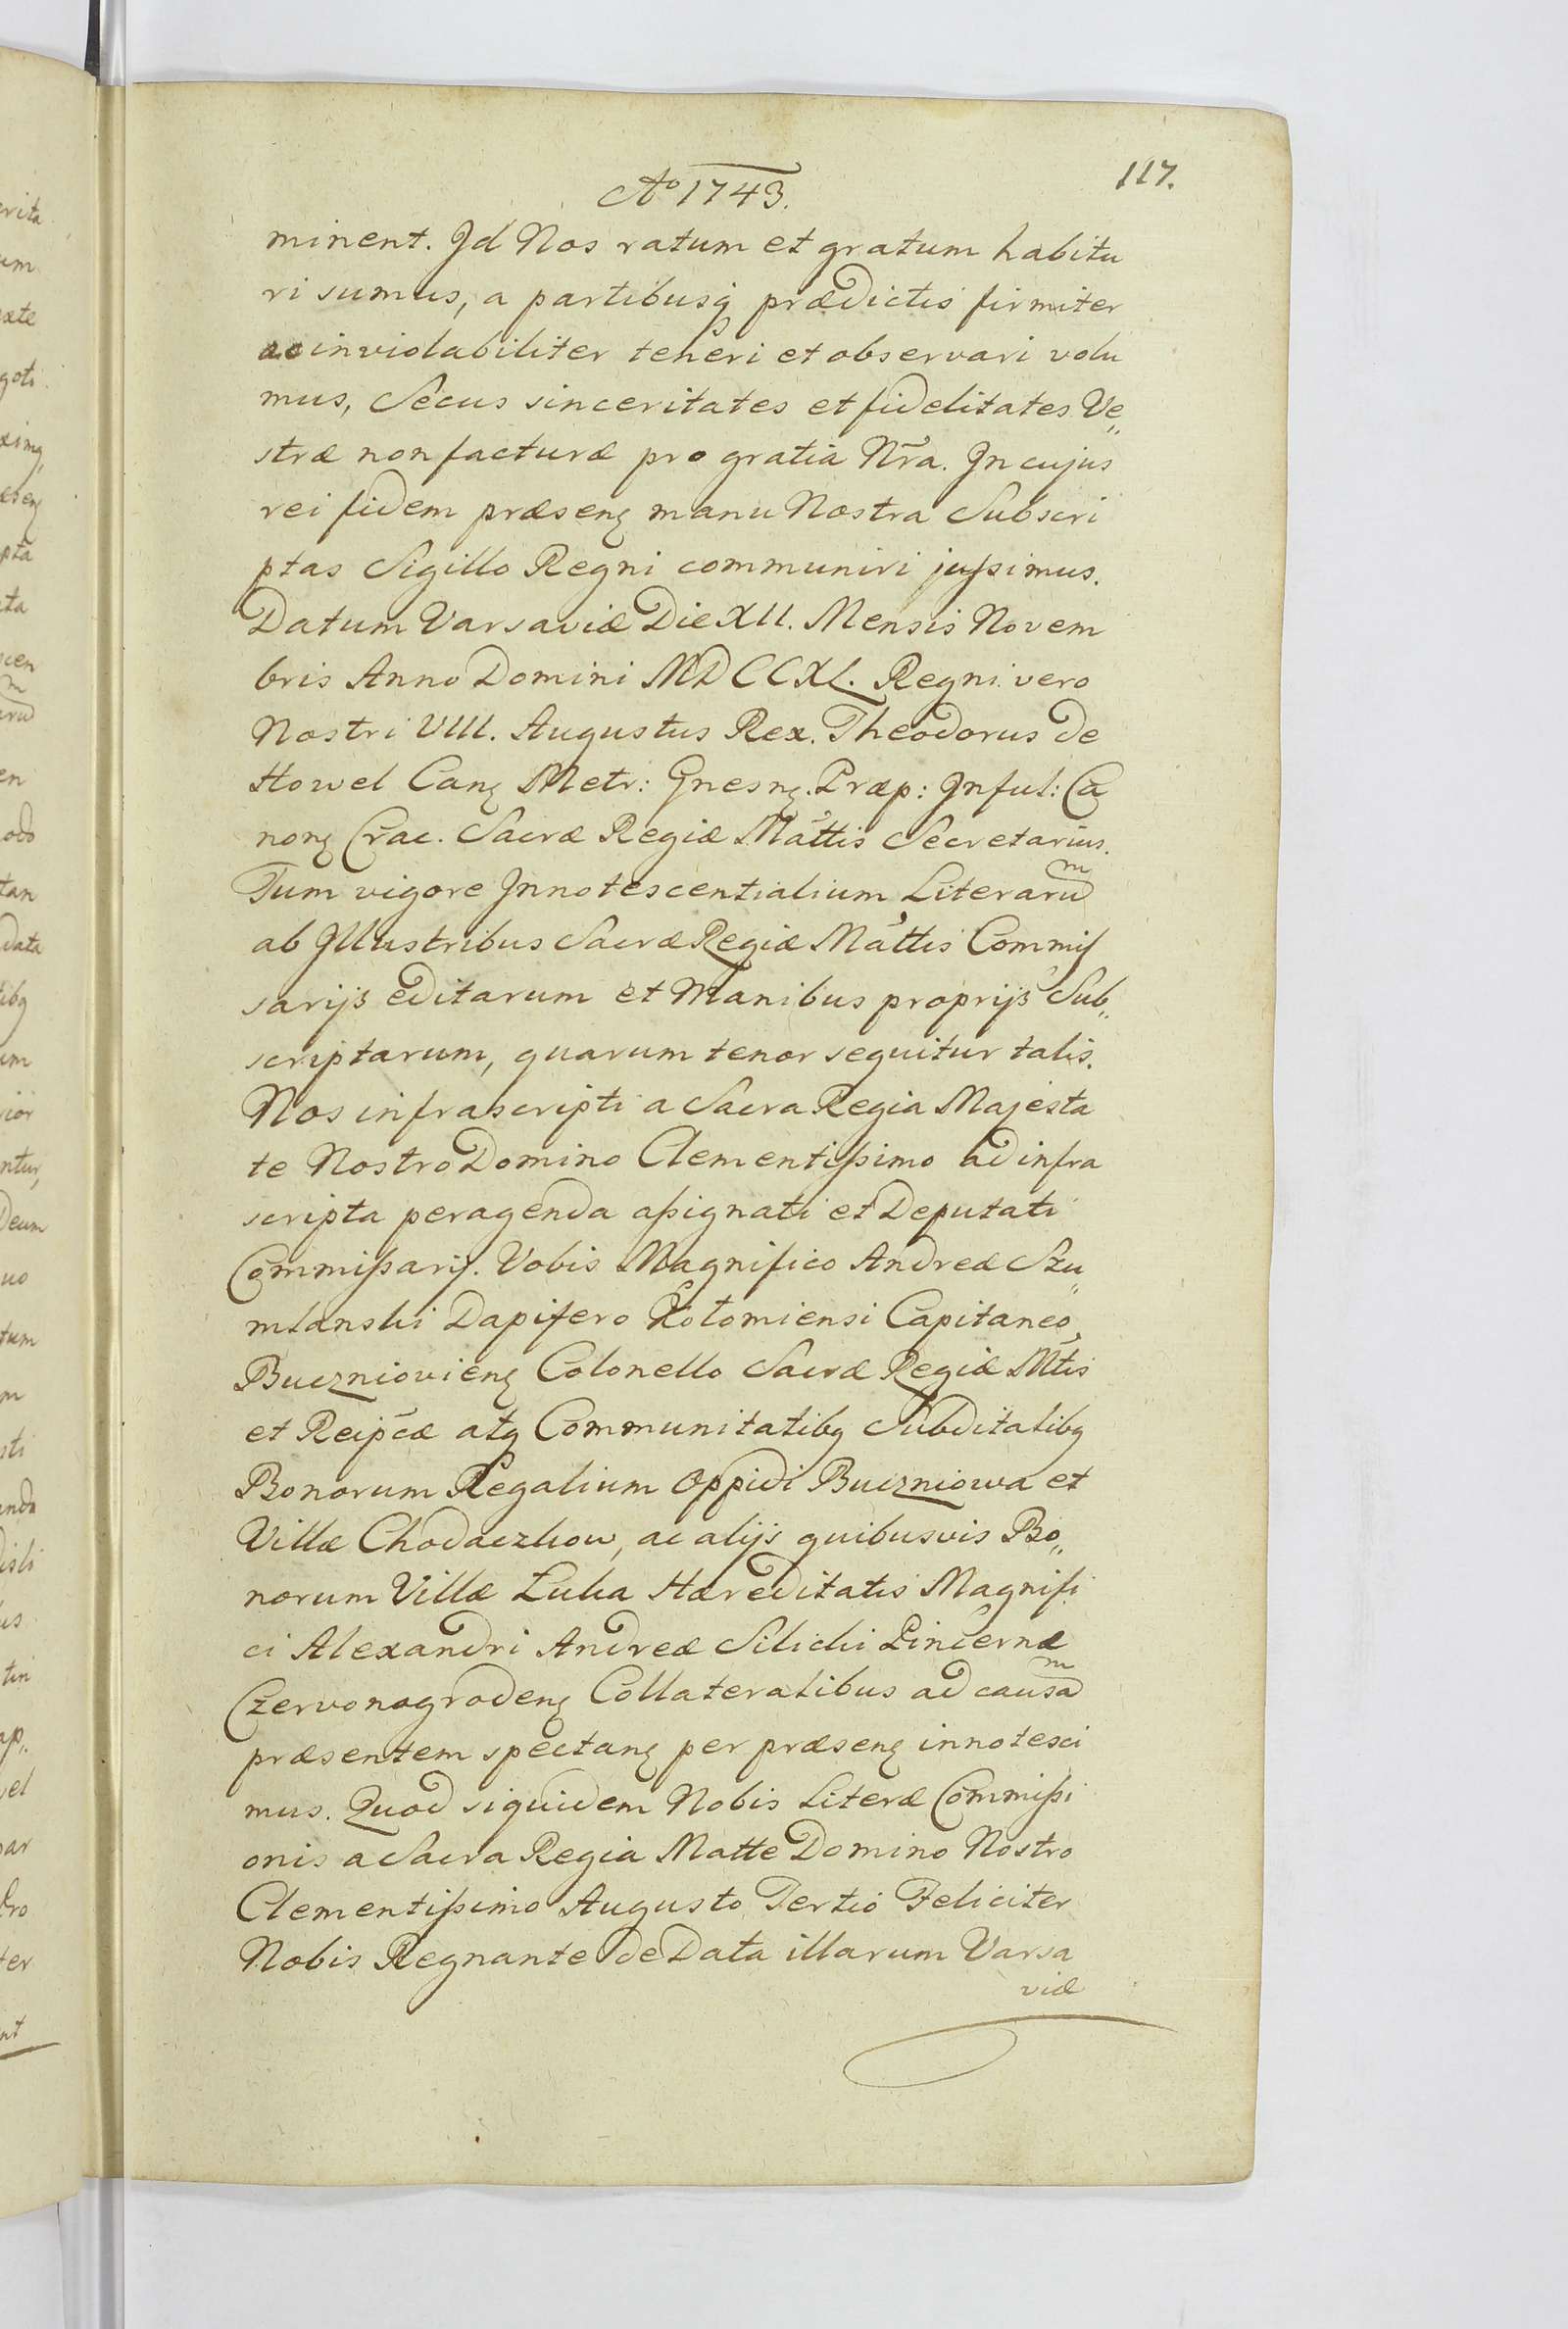 117.
Aº 1743.
minent. Jd Nos ratum et gratum habitu
ri sumus, a partibusq prædictis firmiter
ac inviolabiliter teneri et observari volu
mus, Secus sinceritates et fidelitates Ve„
stræ non facturæ pro gratia Nr̃a. Jn cujus
rei fidem præsenę manu Nostra Subscri
ptas Sigillo Regni communiri jussimus.
Datum Varsaviæ Die XII. Mensis Novem
bris Anno Domini MDCCXL. Regni vero
Nostri VIII. Augustus Rex. Theodorus de
Howel Canę Metr: Gnesnę. Præp: Jnful: Ca
nonę Crac. Sacræ Regiæ Mãttis Secretarius.
Tum vigore Jnnotescentialium Literarum
ab Jllustribus Sacræ Regiæ Mãttis Commis
sarijs editarum et Manibus proprijs Sub„
scriptarum, quarum tenor sequitur talis.
Nos infrascripti a Sacra Regia Majesta
te Nostro Domino Clementissimo ad infra
scripta peragenda assignati et Deputati
Commissarij. Vobis Magnifico Andreæ Szu„
mlanski Dapifero Żołomiensi Capitaneo
Bucznioviенę Colonello Sacræ Regiæ Mttis
et Reipcæ atq Communitatibq Subditatibq
Bonorum Regalium Oppidi Buczniowa et
Villæ Chodaczkow, ac alijs quibusvis Bo„
norum Villæ Łuka Hæreditatis Magnifi
ci Alexandri Andreæ Silicki Pincernæ
Czervonogrodenę Collateralibus ad causam
præsentem spectanę per præsenę innotesci
mus. Quod siquidem Nobis Literæ Commissi
onis a Sacra Regia Matte Domino Nostro
Clementissimo Augusto Tertio Feliciter
Nobis Regnante de Data illarum Varsa
viæ